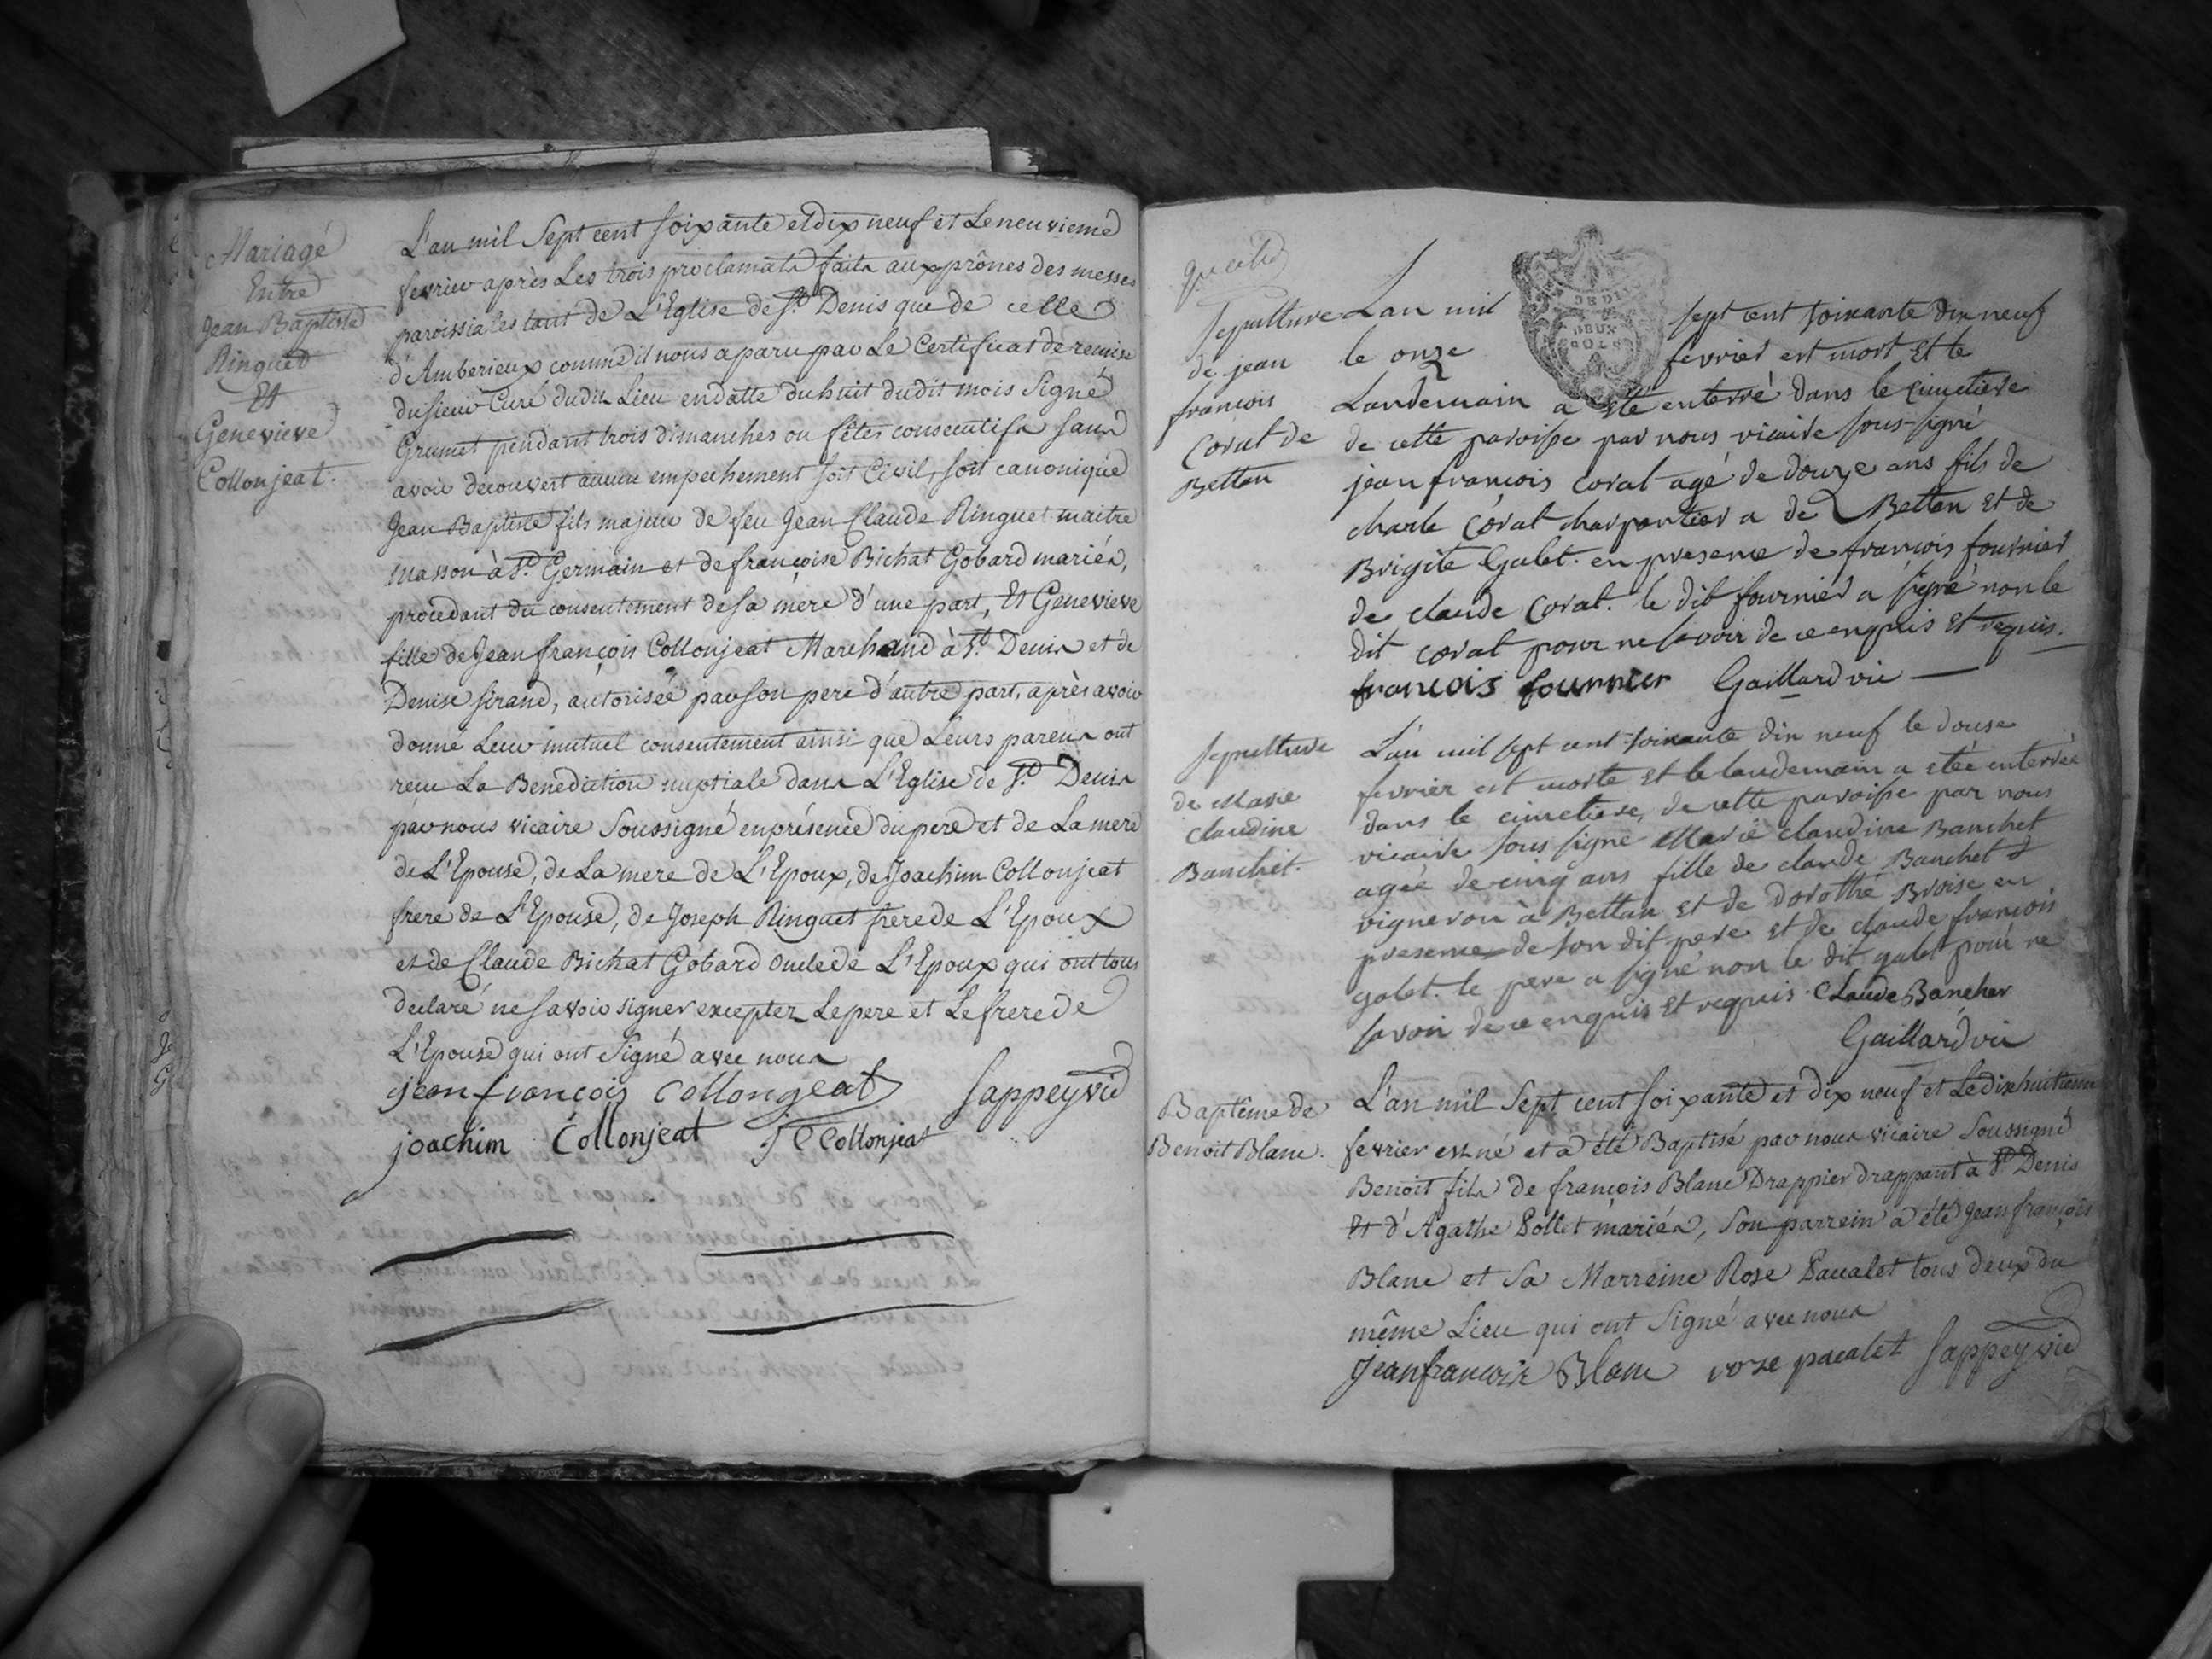 Mariage
Entre
Jean Baptiste
Ringuet
Et
Genevieve
Collonjeat.
L'an mil Sept cent soixante et dix neuf et Le neuvieme
fevrier après Les trois proclamats faits aux prônes des messes
paroissiales tant de L'Eglise de St. Denis que de celle
d'Amberieux comme il nous a paru par Le Certificat de remise
du sieur Curé dudit Lieu en datte du huit dudit mois Signé
Grumet pendant trois dimanches ou fêtes consecutifs sans
avoir decouvert aucun empechement soit Civil, soit canonique
Jean Baptiste fils majeur de feu Jean Claude Ringuet maitre
masson à St. Germain et de françoise Bichat Gobard mariés,
procedant du consentement de sa mere d'une part, Et Genevieve
fille de Jean françois Collonjeat Marchand à St. Denis et de
Denise Sirand, autorisée par son pere d'autre part, après avoir
donné Leur mutuel consentement ainsi que Leurs parens ont
recu La Benediction nuptiale dans L'Eglise de St. Denis
par nous vicaire Soussigné en présence du pere et de La mere
de L'Epouse, de La mere de L'Epoux, de Joachim Collonjeat
frere de L'Epouse, de Joseph Ringuet frere de L'Epoux
et de Claude Bichat Gobard oncle de L'Epoux qui ont tous
declaré ne savoir signer excepter Le pere et Le frere de
L'Epouse qui ont Signé avec nous
jean françois Collongeat Sappey vic
joachim Collonjeat Collonjeat
sepulture
de jean
francois
Corat de
Bettan
L'an mil sept cent soixante dix neuf
le onze fevrier est mort Et le
Landemain a eté enterré dans le cimetiere
de cette paroisse par nous vicaire sous-signé
jean françois Corat agé de douze ans fils de
charle Corat charpantier a de Bettan Et de
Brigite Galet. en presence de françois fournier
de claude Corat. le dit fournier a signé non le
dit corat pour ne savoir de ce enquis Et requis.
françois fournier Gaillard vic
DEUX
sepulture
de Marie
claudine
Banchet.
L'an mil sept cent soixante dix neuf le douse
fevrier est morte Et le landemain a eteé enterrée
dans le cimetiere, de cette paroisse par nous
vicaire sous signé Marie claudine Banchet
ageé de cinq ans fille de claude Banchet
vigneron à Bettan Et de dorothé Broise en
presence de son dit pere et de claude françois
galet. le pere a signé non le dit galet pour ne
savoir de ce enquis Et requis. Claude Bancher
Gaillard vic
Baptême de
Benoit Blanc.
L'an mil Sept cent soixante et dix neuf et Le dixhuitieme
fevrier est né et a été Baptisé par nous vicaire Soussigné
Benoit fils de françois Blanc Drappier drappant à St. Denis
Et d'Agathe Pollet mariés, Son parrein a été Jean françois
Blanc et Sa Marreine Rose Pacalet tous deux du
même Lieu qui ont Signé avec nous
jean francois Blanc roze pacalet Sappey vic